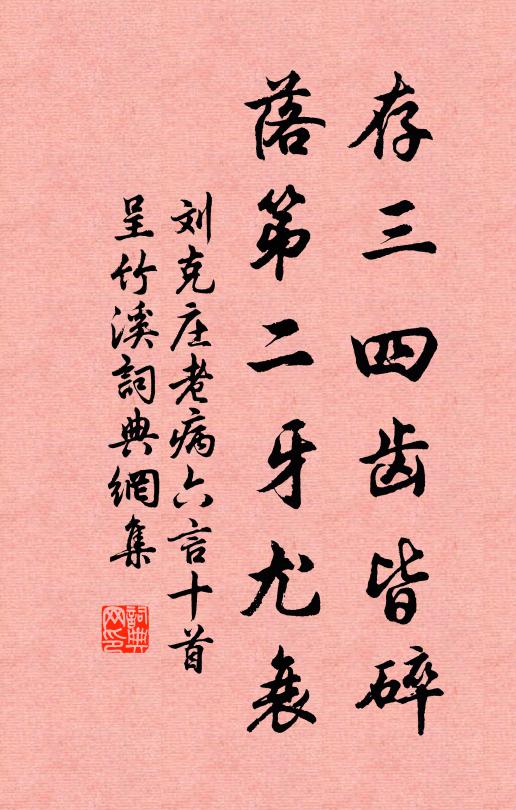 存三四齿皆碎
落第二牙尤衰
刘克庄老病六言十首
呈竹溪詞典網集
詞典
网印